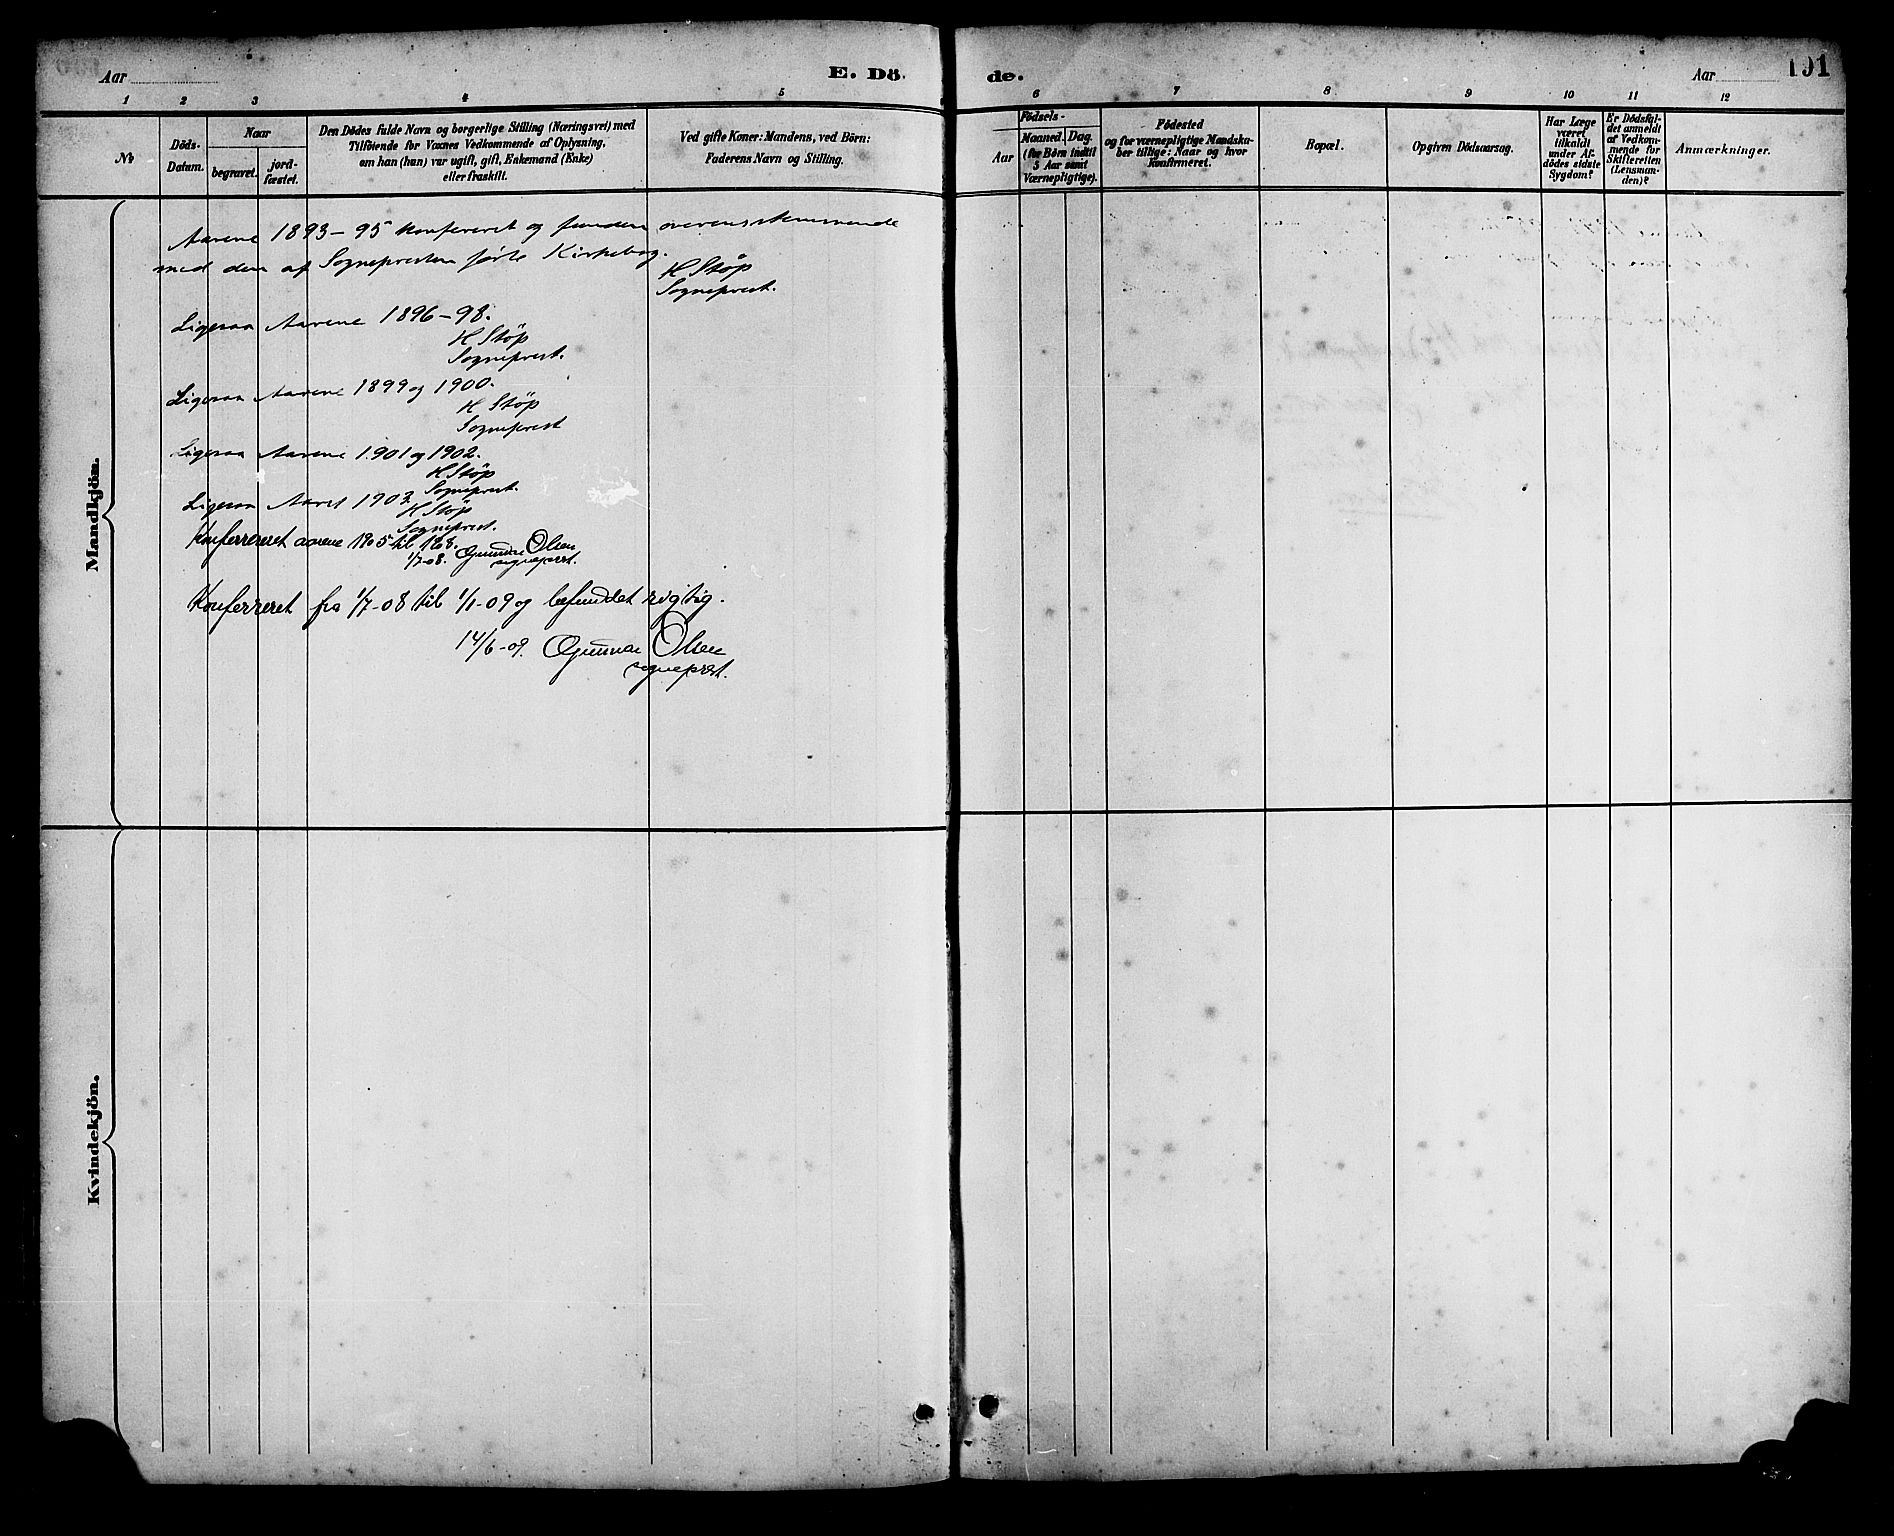 Aar E. Dö- de. Aar 191
1 2 3 4 5 6 7 8 9 10 11 12
No
Döds-
Datum.
Naar
begravet.
jord-
fæstet.
Den Dödes fulde Navn og borgerlige Stilling (Næringsvei) med
Tilföiende for Voxnes Vedkommende af Oplysning,
om han (hun) var ugift, gift, Enkemand (Enke)
eller fraskilt.
Ved gifte Koner: Mandens, ved Börn:
Faderens Navn og Stilling.
Födsels-
Aar
Maaned. Dag.
(for Börn indtil
5 Aar samt
Værnepligtige).
Födested
og for værnepligtige Mandska-
ber tillige: Naar og hvor
konfirmeret.
Bopæl.
Opgiven Dödsaarsag.
Har Læge
været
tilkaldt
under Af-
dödes sidste
Sygdom?
Er Dödsfal-
det anmeldt
af Vedkom-
mende for
Skifteretten
(Lensman-
den)?
Anmærkninger.
Mandkjön.
Aarene 1893-95 konfereret og funden overensstemmende
med den af Sognepresten førte Kirkebog.
H Støp
Sogneprest.
Ligesaa Aarene 1896-98.
H Støp
Sogneprest.
Ligesaa Aarene 1899 og 1900.
H Støp
Sogneprest
Ligesaa Aarene 1901 og 1902.
H. Støp
Sogneprest.
Ligesaa Aaret 1903.
H Støp
Sogneprest.
Konferreret aarene 1905 til 1/7 08.
1/7-08. Gunnar Olsen
sogneprest.
Konferreret fra 1/7-08 til 1/1-09 og befundet rigtig.
14/6-09. Gunnar Olsen
sogneprest.
Kvindekjön.